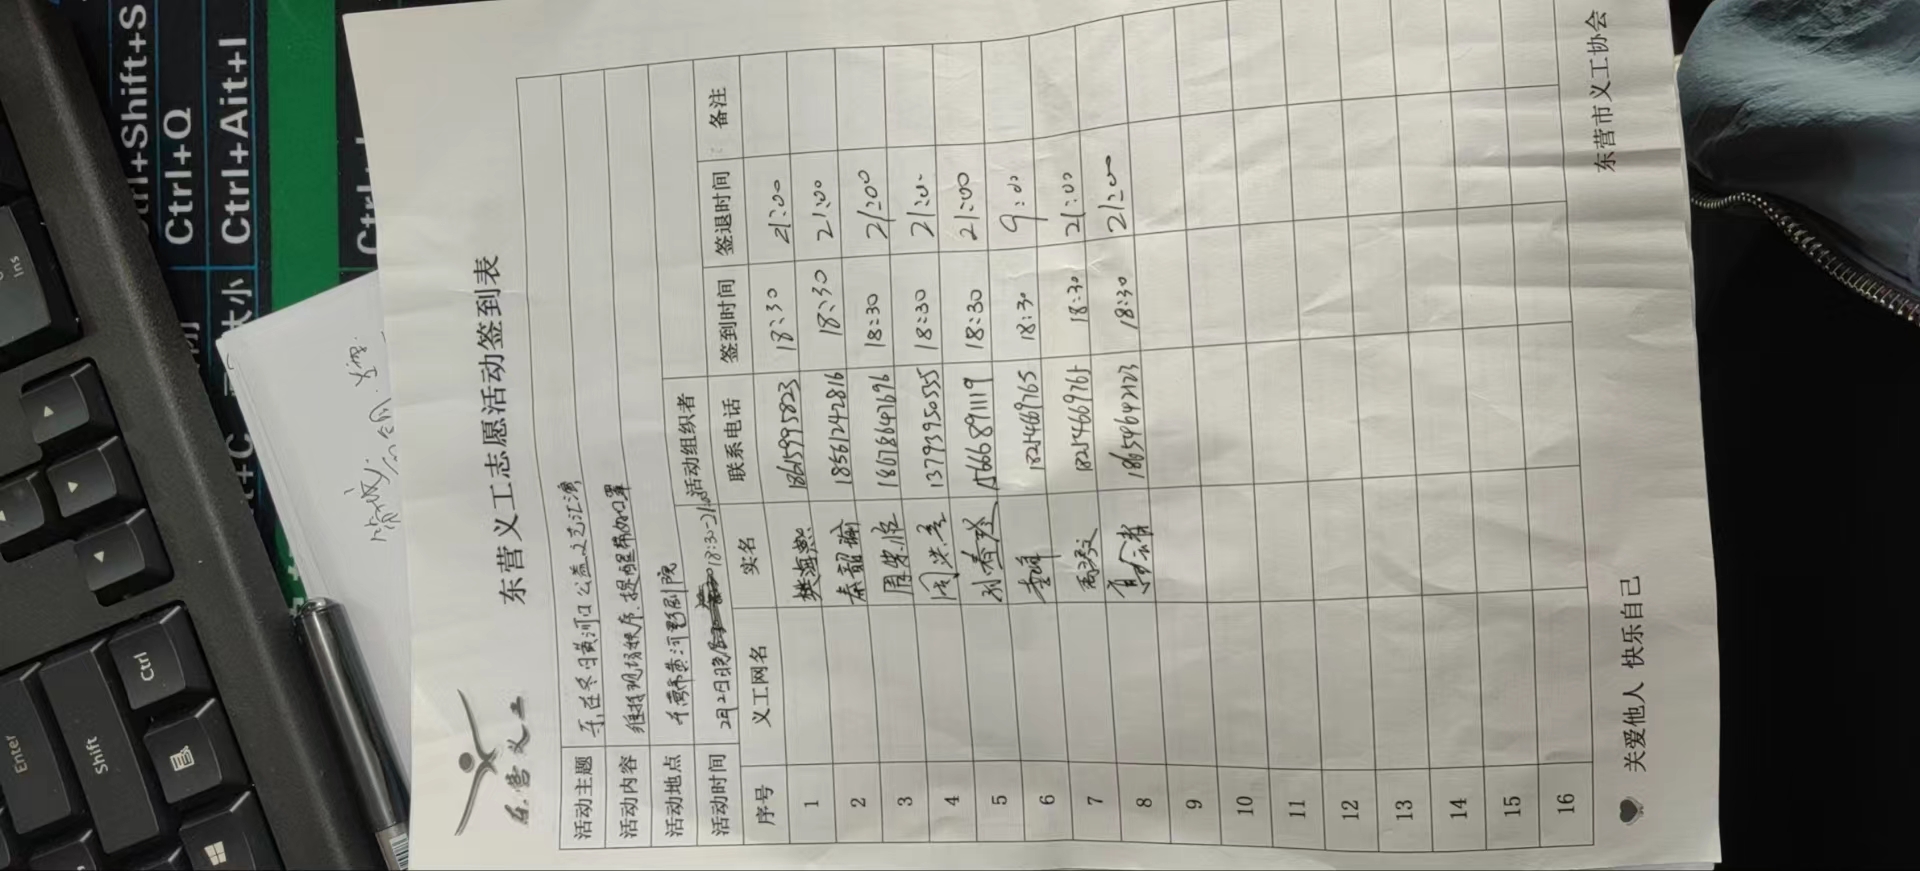 东营义工志愿活动签到表
东营义工
活动主题 冬日黄河口 公益文艺汇演
活动内容 维持现场秩序.提醒带好口罩
活动地点 东营市黄河影剧院
活动时间 2月2日晚 18:30-21:00 活动组织者
序号 义工网名 实名 联系电话 签到时间 签退时间 备注
1 樊海熙 18615995823 18:30 21:00
2 秦韶瑜 18561242816 18:30 21:00
3 18678647696 18:30 21:00
4 周洪彦 13793950535 18:30 21:00
5 孙春玲 15666891119 18:30 21:00
6 李峰 18254669765 18:30 9:00
7 18254669765 18:30 21:00
8 18654642123 18:30 21:00
9
10
11
12
13
14
15
16
关爱他人 快乐自己
东营市义工协会
Ctrl+Shift+S
Ctrl+Q
Ctrl+Ait+I
Ins
Enter
Shift
Ctrl